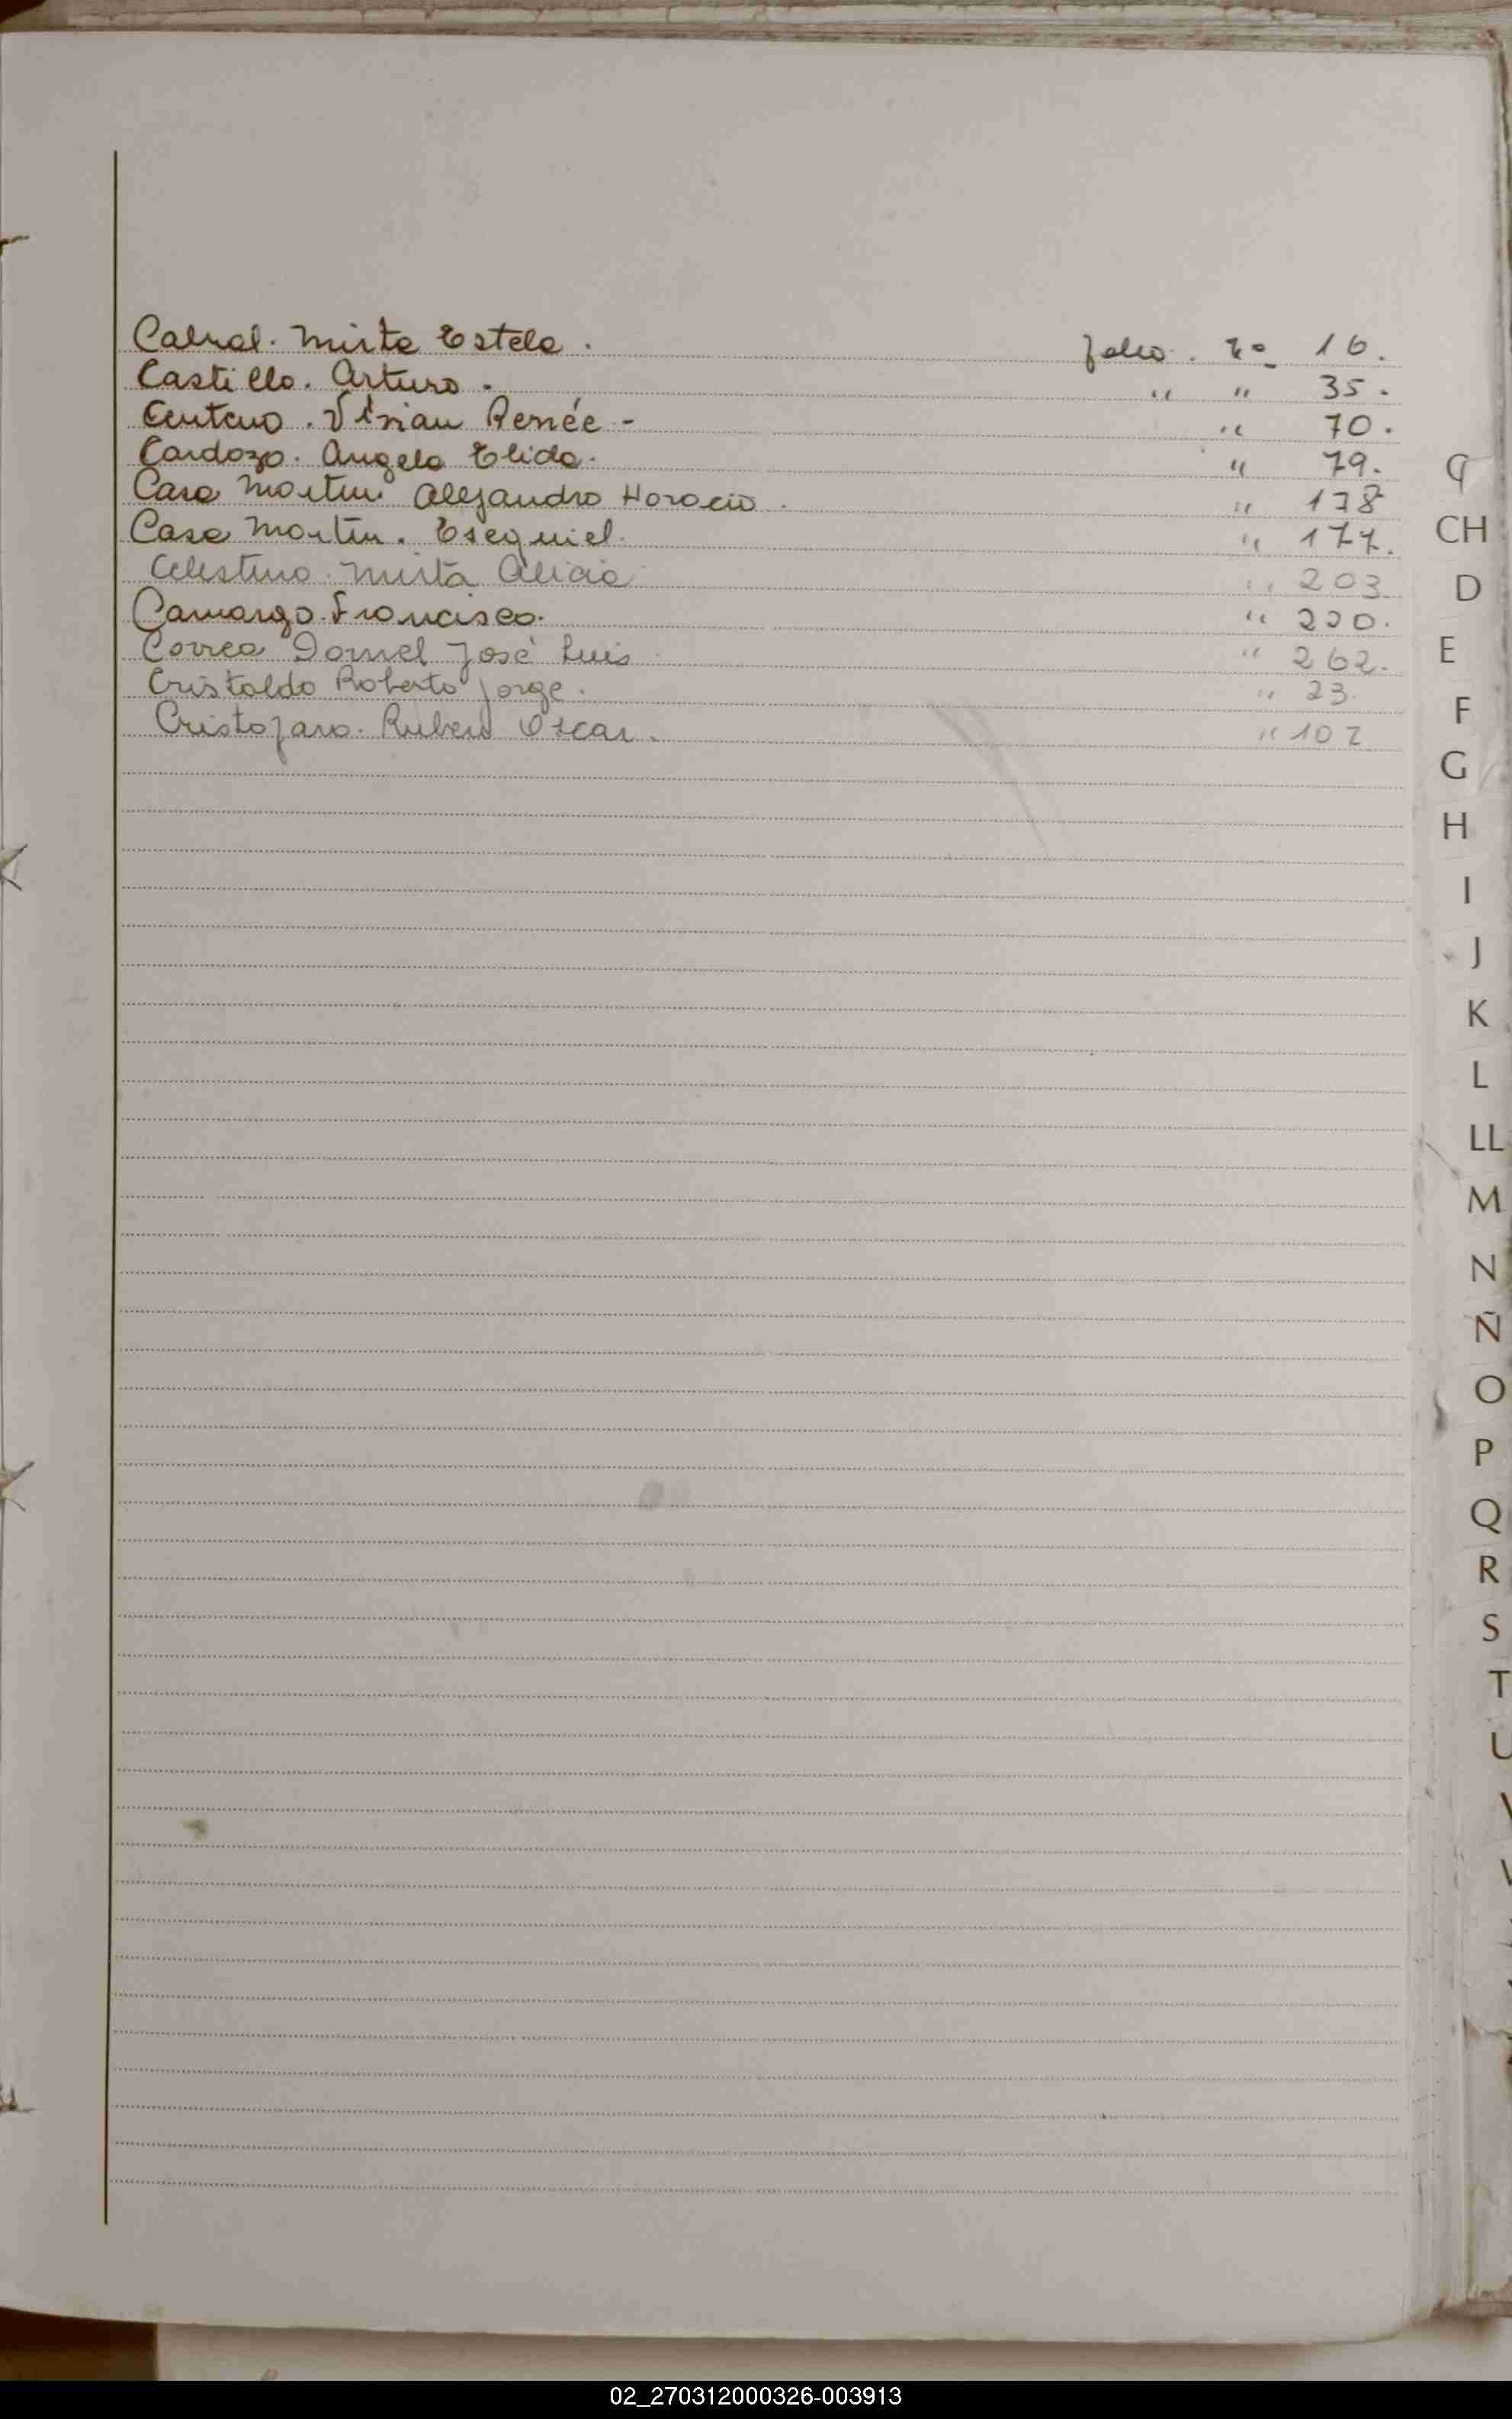 Cabral. Mirta Estela. folio. nº 16.
Castillo. Arturo. " " 35.
Centeno. Vivian Renée - " 70.
Cardozo. Angela Elida. " 79.
Casa Martin Alejandro Horacio. " 178
Casa Martin. Esequiel. " 177.
Celestino. Mirta Alicia " 203
Camargo. Francisco. " 220.
Correa Dornel José Luis. " 262.
Cristaldo Roberto Jorge. " 23.
Cristofaro. Ruben Oscar. " 102
C
CH
D
E
F
G
H
I
J
K
L
LL
M
N
Ñ
O
P
Q
R
S
T
U
02_270312000326-003913